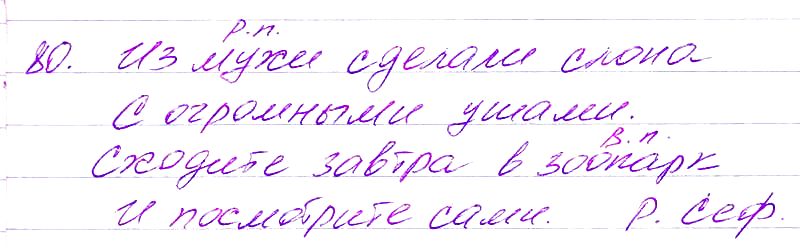 р.п.
80. Из мухи сделали слона
С огромными ушами.
В.п.
Сходите завтра в зоопарк
И посмотрите сами. Р. Сеф.